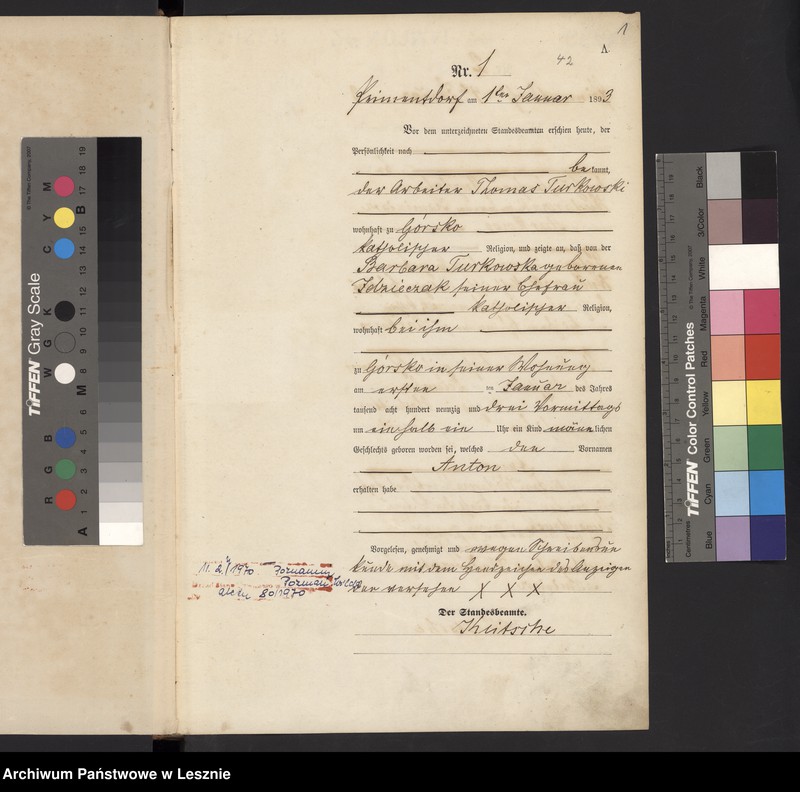 1
42
A.
Nr. 1
Primentdorf am 1ten Januar 1893
Vor dem unterzeichneten Standesbeamten erschien heute, der
Persönlichkeit nach
bekannt,
der Arbeiter Thomas Turkowski
wohnhaft zu Górsko
katholischer Religion, und zeigte an, daß von der
Barbara Turkowska geborenen
Idzieczak seiner Ehefrau
katholischer Religion,
wohnhaft bei ihm
zu Górsko in seiner Wohnung
am ersten ten Januar des Jahres
tausend acht hundert neunzig und drei Vormittags
um ein halb ein Uhr ein Kind männlichen
Geschlechts geboren worden sei, welches den Vornamen
Anton
erhalten habe
Vorgelesen, genehmigt und wegen Schreibensun
kunde mit dem Handzeichen des Anzeigen
den versehen X X X
Der Standesbeamte.
Klitsche
1970
Poznań
aktu 80/1970
TIFFEN Gray Scale
© The Tiffen Company, 2007
R G B W G K C Y M
A 1 2 3 4 5 6 M 8 9 10 11 12 13 14 15 B 17 18 19
TIFFEN Color Control Patches
© The Tiffen Company, 2007
Inches
Centimetres
Blue Cyan Green Yellow Red Magenta White 3/Color Black
Archiwum Państwowe w Lesznie